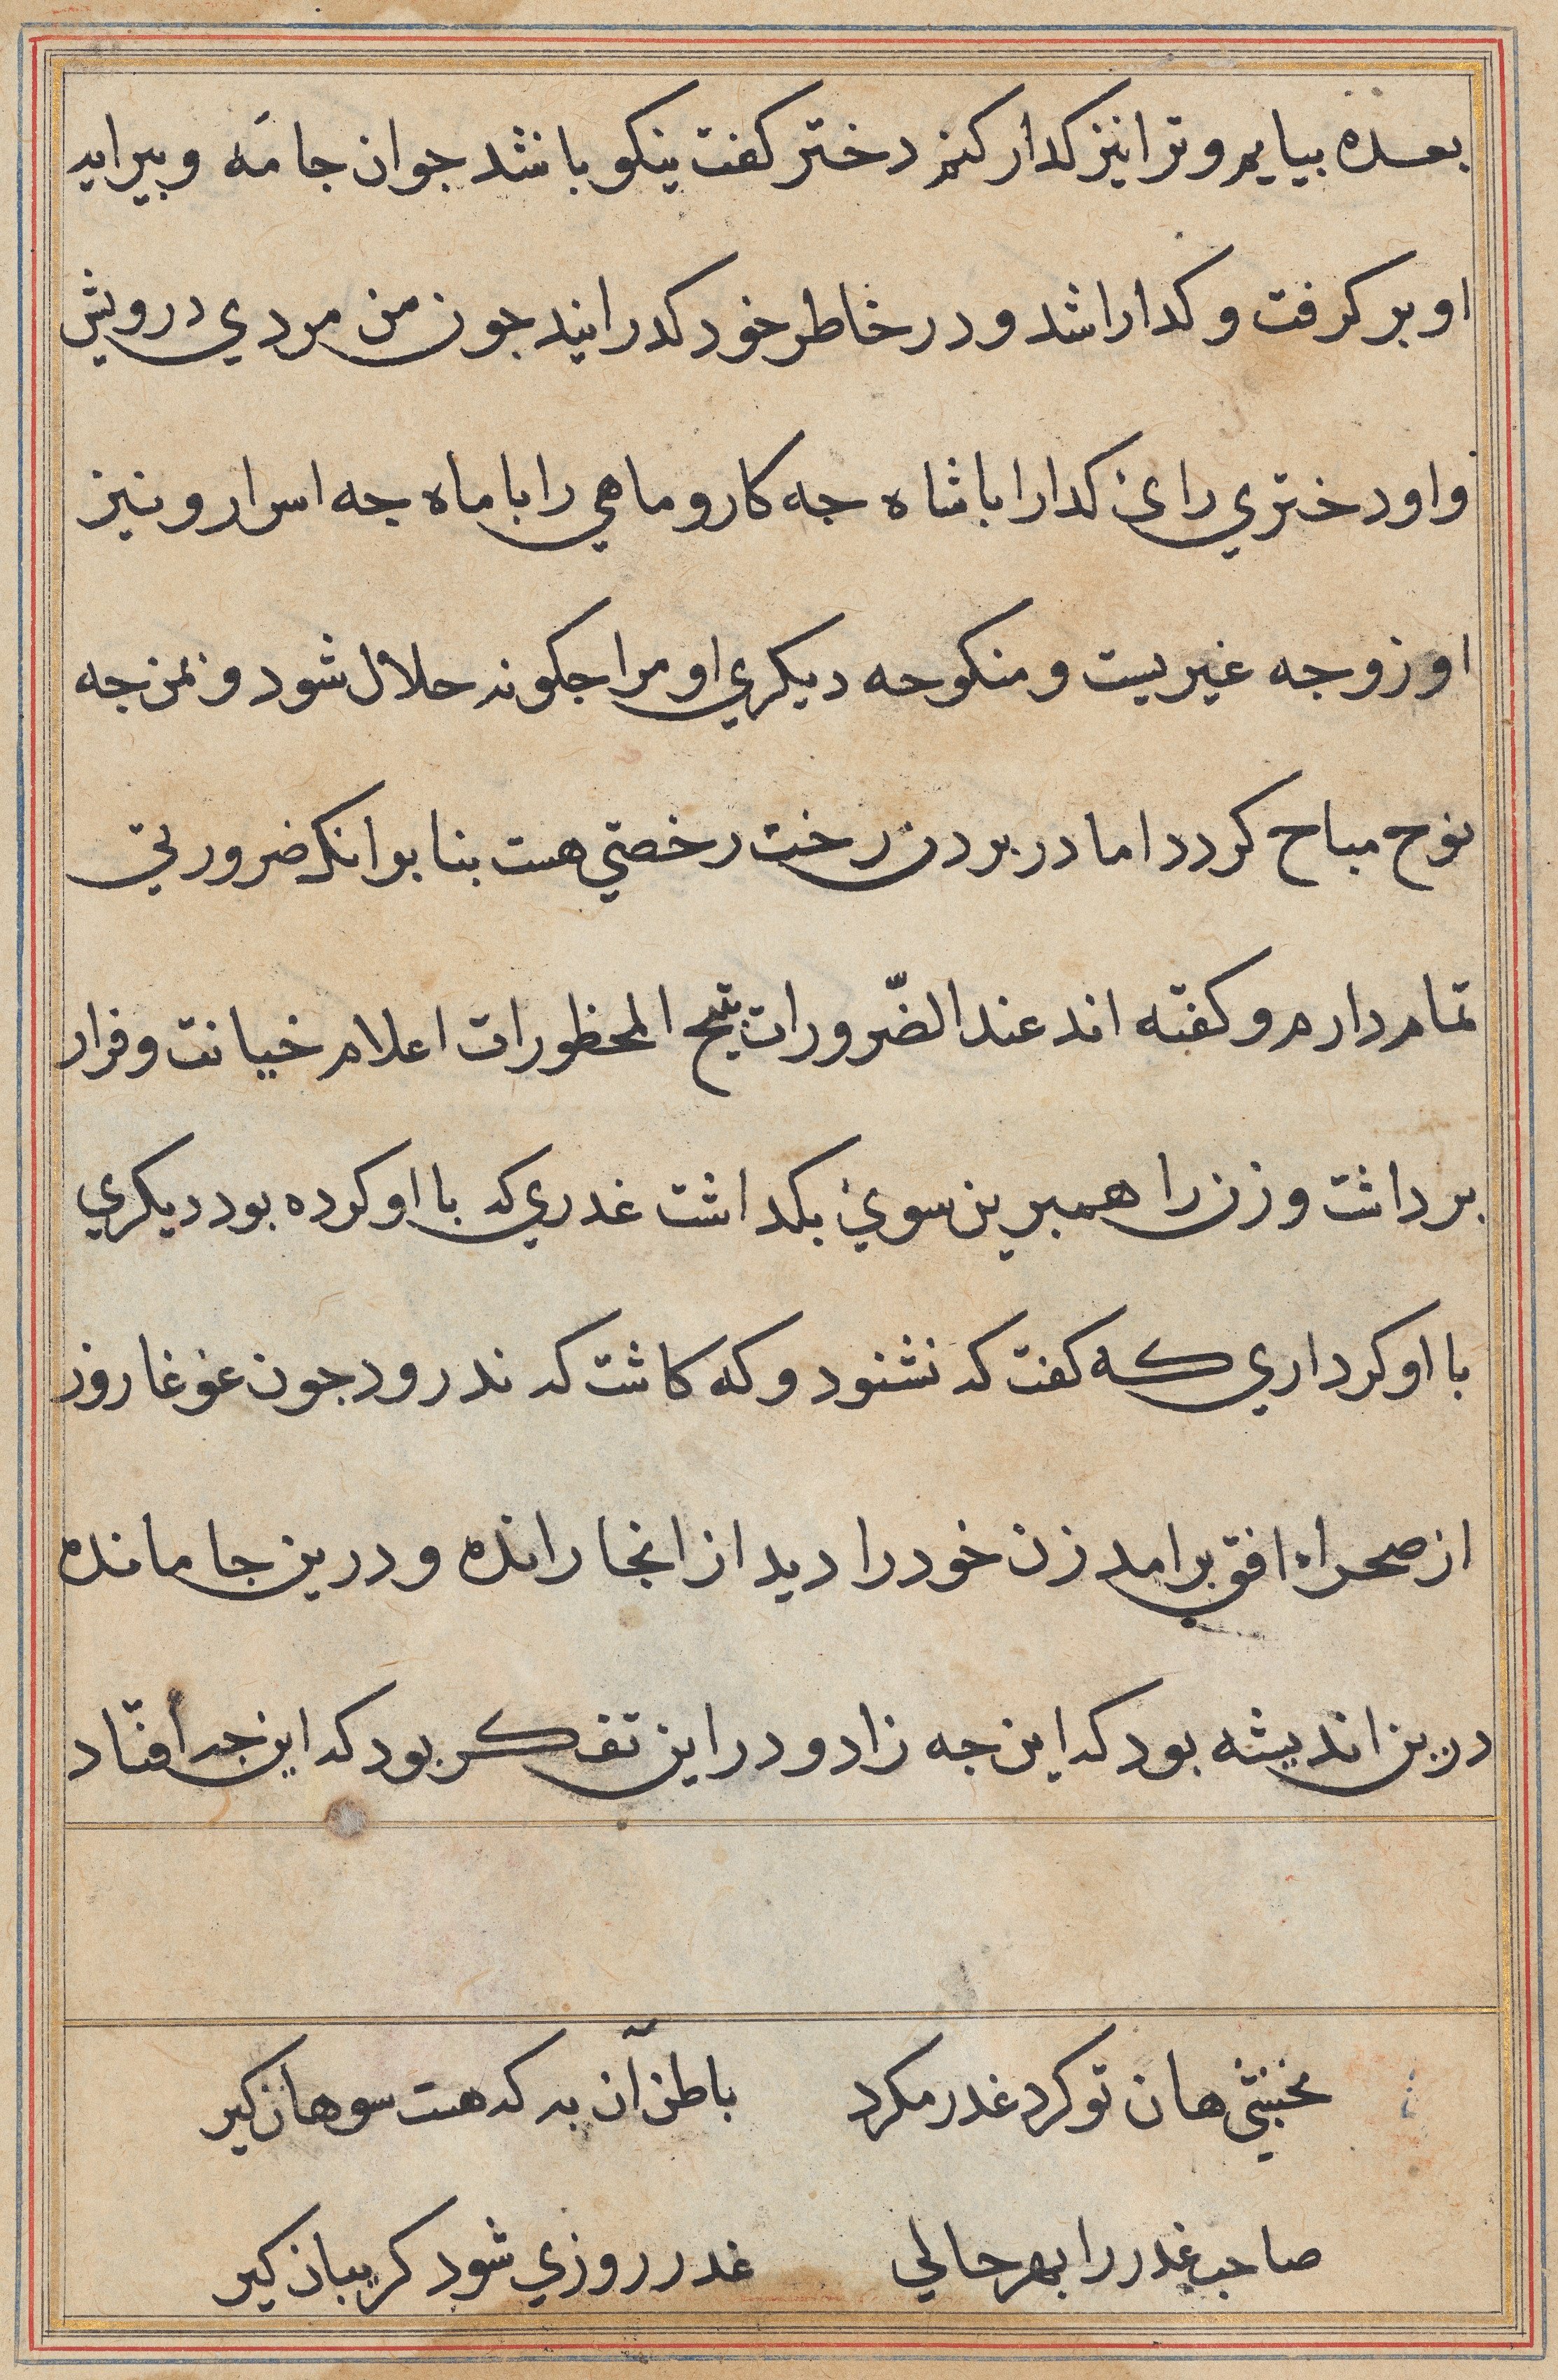 بعده بیایم و ترا نیز کدار کنم دختر کفت نیکو باشد جوان جامَه و بیرایه
او بر کرفت و کدارا شد و در خاطر خود کدرانید جون من مردي درویش
و او دختري رائ کدا را با شاه جه کار و ماهي را با ماه جه اسرار و نیز
او زوجه غیریست و منکوحه دیکري او مرا جکونه حلال شود و بمن جه
نوح مباح کردد اما در بردن رخت رخصتي هست بنا بر انکه ضرورتي
تمام دارم و کفته اند عند الضّرورات تبیح المحظورات اعلام خیانت و فرار
برداشت و زن را همبرین سوئ بکداشت غدري که با او کرده بود دیکري
با او کرداري که کفت که نشنود و که کاشت که ندرود جون غوغا روز
از صحراء افق برامد زن خود را دید از انجا رانده و درین جا مانده
درین اندیشه بود که این جه زاد و در این تفکر بود که این جه افتاد
نخشبي هان تو کرد غدر مکرد
باطن آن به که هست سوهان کیر
صاحب غدر را بهر حالي
غدر روزي شود کریبان کیر